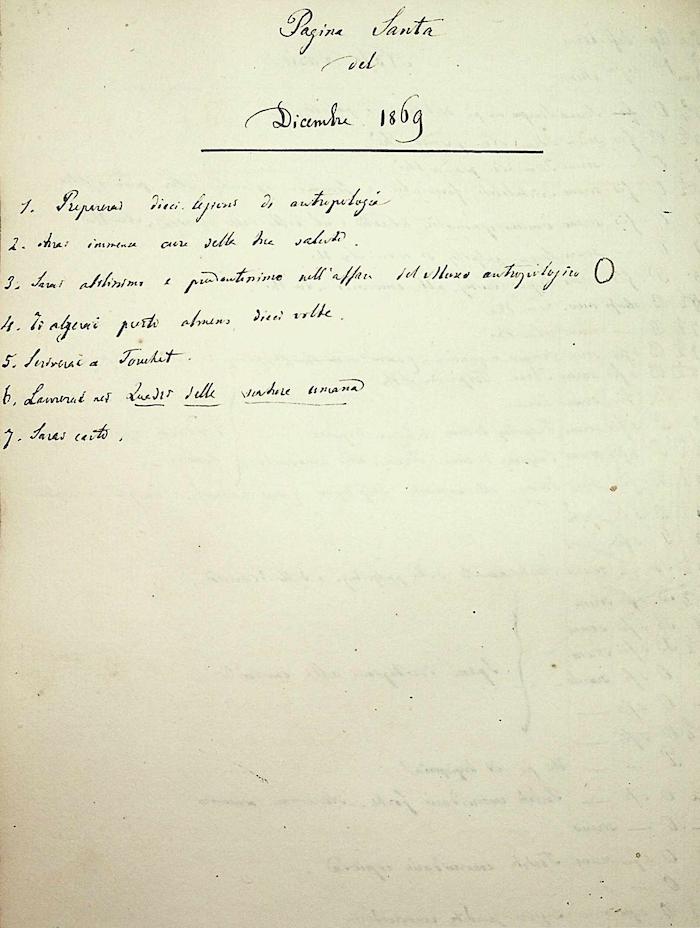 Pagina Santa
del
Dicembre 1869
1. Preparerai dieci lezioni di antropologia
2. Avrai immensa cura della tua salute.
3. Sarai abilissimo e prudentissimo nell'affare del Museo antropologico O
4. Ti alzerai presto almeno dieci volte.
5. Scriverai a Pouchet.
6. Lavorerai nei Quadri della natura umana
7. Sarai casto.